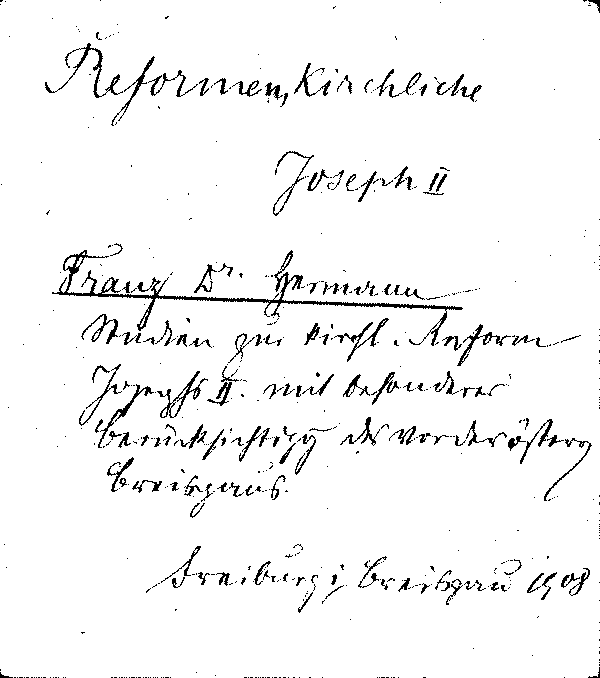 Reformen, Kirchliche
Joseph II
Franz Dr. Hermann
Studien zur kirchl. Reform
Josephs II. mit besonderer
Berücksichtigg des vorderösterr
Breisgaus.
Freiburg i Breisgau 1908